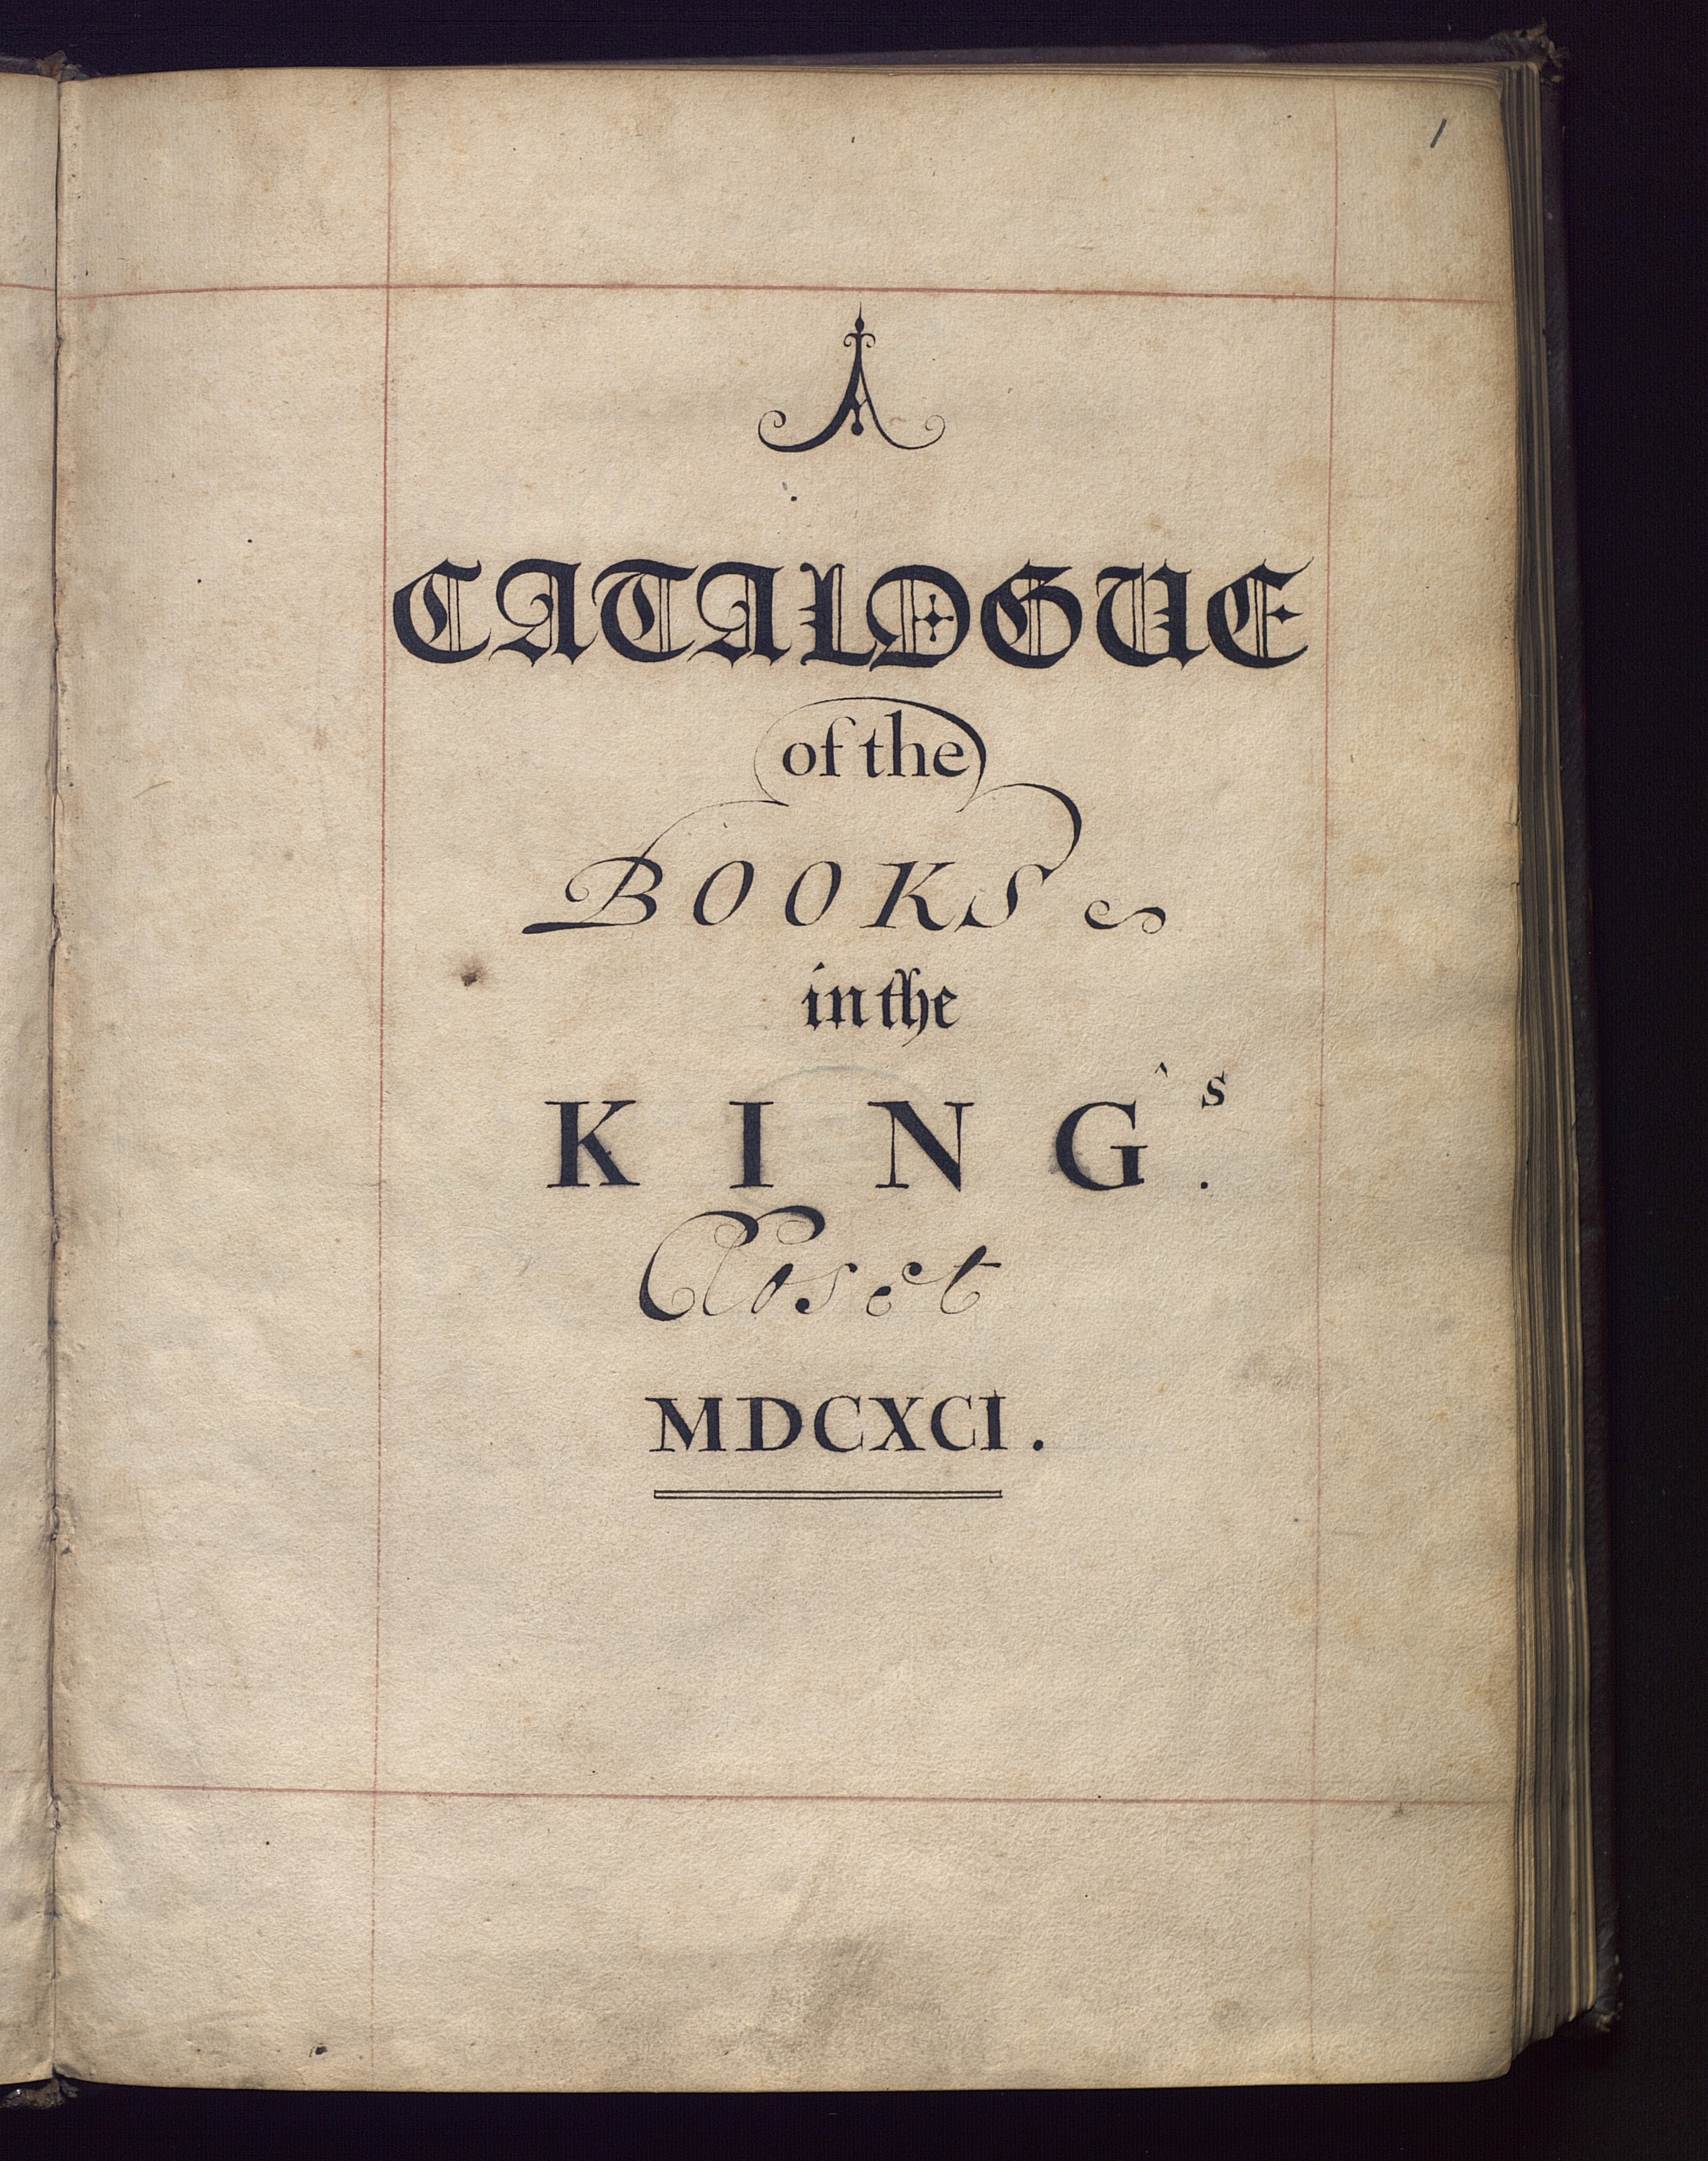 1
A
CATALOGUE
of the
BOOKS
in the
KING's.
Closet
MDCXCI.